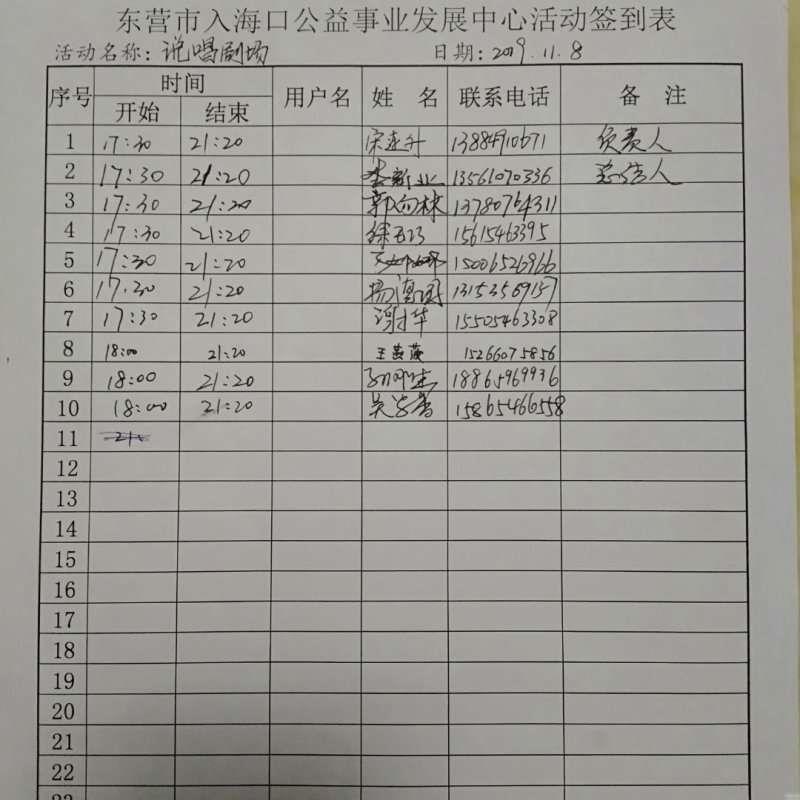 东营市入海口公益事业发展中心活动签到表
活动名称：说唱剧场 日期：2019.11.8
序号 时间 用户名 姓 名 联系电话 备 注
开始 结束
1 17:30 21:20 宋连升 13884910671 负责人
2 17:30 21:20 李新业 13561070336 总结人
3 17:30 21:20 郭向林 13780764311
4 17:30 21:20 15615463395
5 17:30 21:20 15006526966
6 17:30 21:20 13153569157
7 17:30 21:20 谢华 15505463308
8 18:00 21:20 王黄薇 15266075856
9 18:00 21:20 18865969936
10 18:00 21:20 15865466558
11
12
13
14
15
16
17
18
19
20
21
22
23